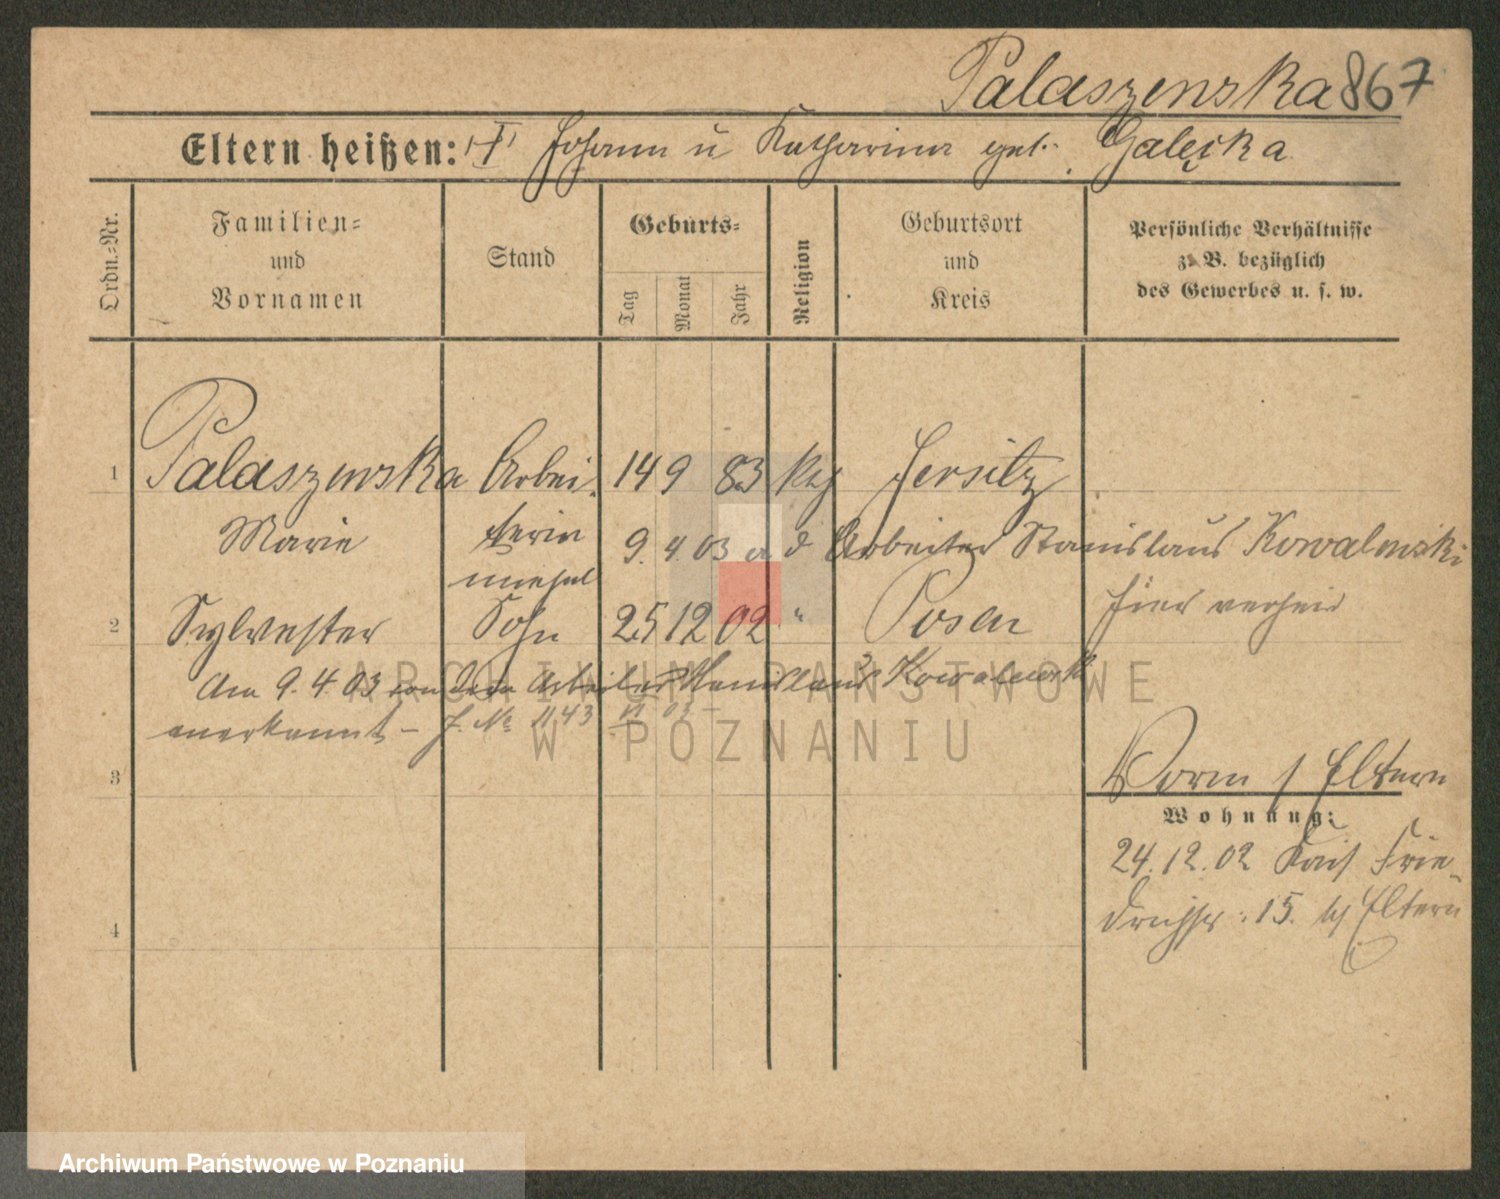 Palaszewska 867
Eltern heißen: I Johann u Katharina geb. Galęska
Ordn.-Nr.
Familien-
und
Vornamen
Stand
Geburts-
Tag
Monat
Jahr
Religion
Geburtsort
und
Kreis
Persönliche Verhältnisse
z. B. bezüglich
des Gewerbes u. s. w.
1 Palaszewska Arbei- 14 9 83 kth Jersitz
Marie terin 9. 4. 03 a d Arbeiter Stanislaus Kowalewski
unehel hier verheir
2 Sylvester Sohn 25 12 02 " Posen
Am 9. 4. 03 von dem Arbeiter Stanislaus Kowalewski
anerkannt – J. No 1143 VI 03 –
3
Vorm / Eltern
Wohnung:
24. 12. 02 Kais Frie-
drichstr: 15. b/ Eltern
4
ARCHIWUM PAŃSTWOWE
W POZNANIU
Archiwum Państwowe w Poznaniu